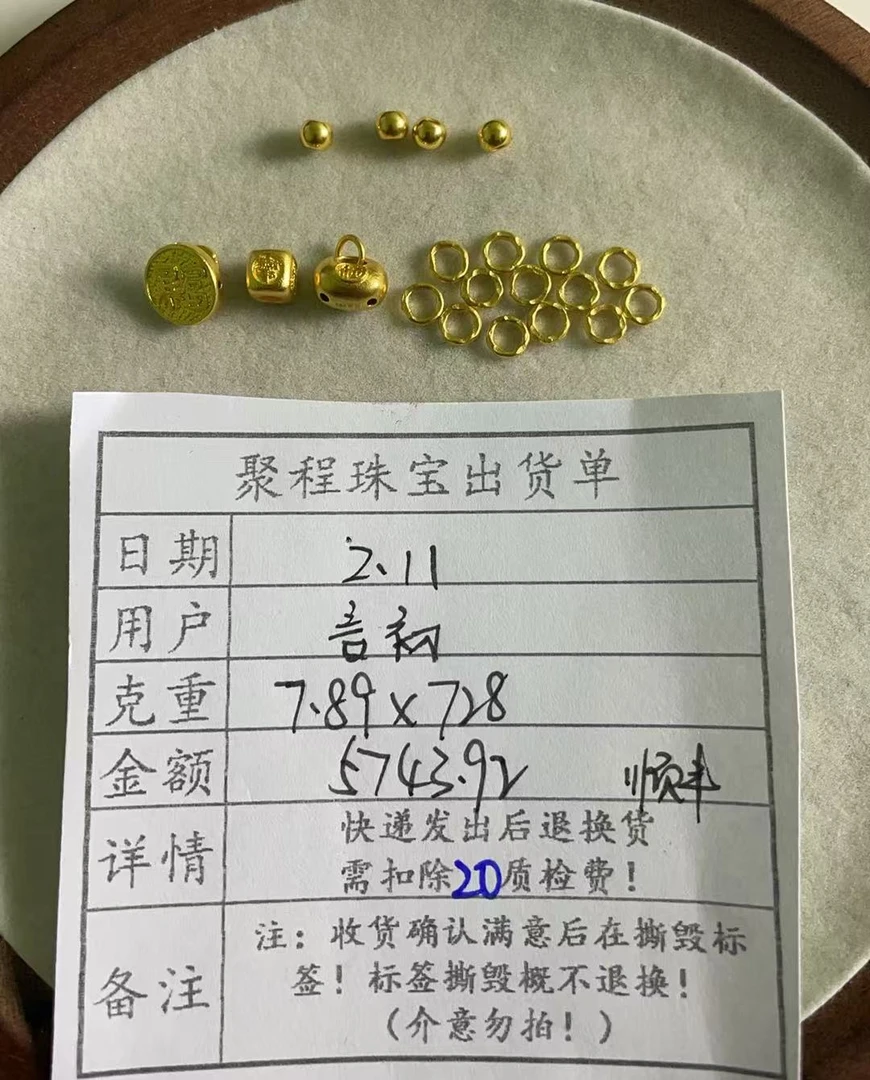 聚程珠宝出货单
日期 2.11
用户 音初
克重 7.89×728
金额 5743.92 顺丰
详情 快递发出后退换货
需扣除20质检费！
备注 注：收货确认满意后在撕毁标
签！标签撕毁概不退换！
（介意勿拍！）